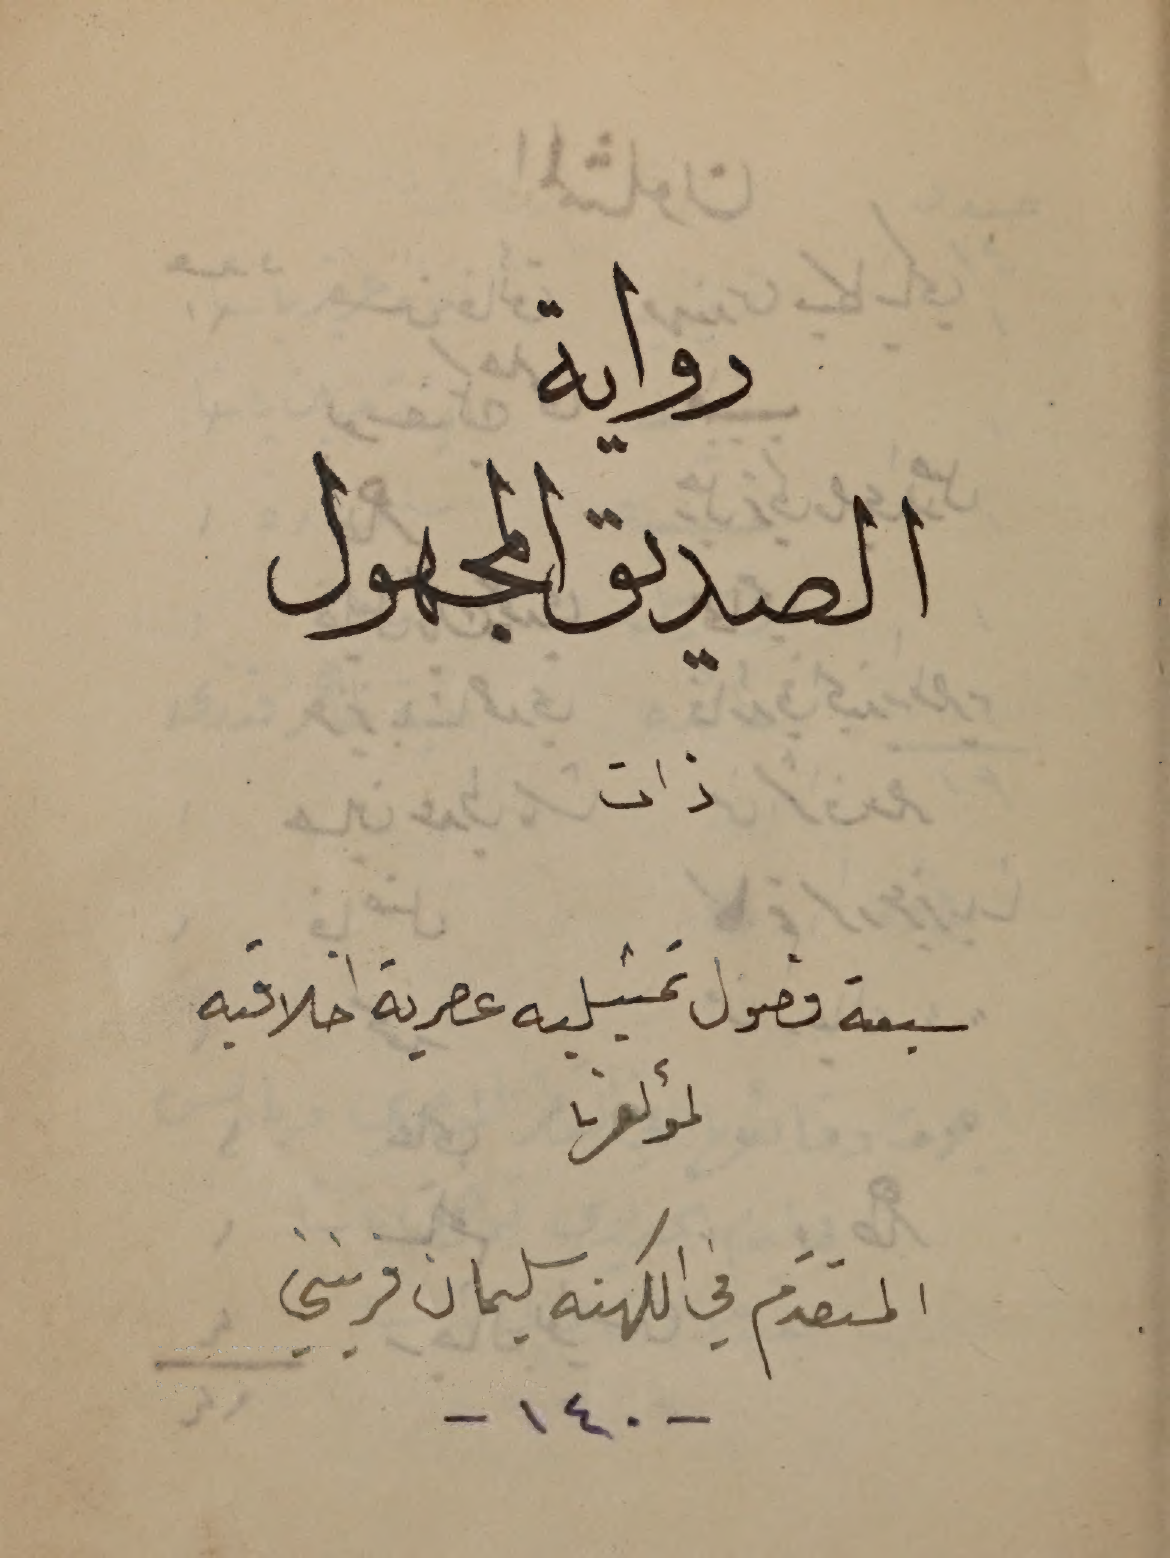 رواية
الصديق المجهول
ذات
سبعة فصول تمثيليه عصرية اخلاقيه
لمؤلفها
المتقدم في الكهنه سليمان فرينني
- ١٤٠ -